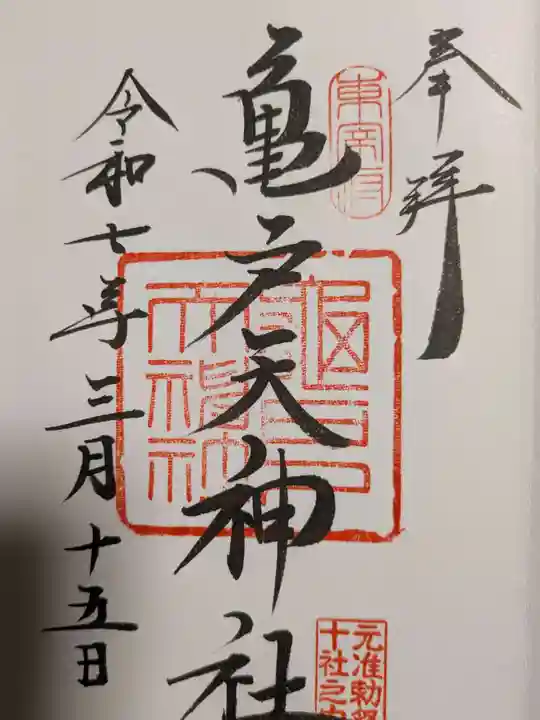 奉拝
東宰府
亀戸天神社
亀戸天神社
元准勅祭
十社之内
令和七年三月十五日